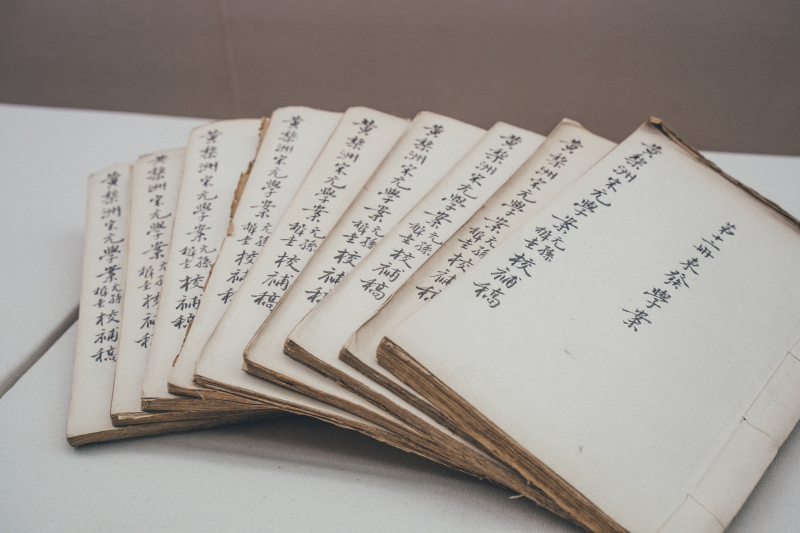 第十一册 東發學案
黃黎洲宋元學案元孫稚圭校補稿
黃黎洲宋元學案元孫稚圭校補稿
黃黎洲宋元學案元孫稚圭校補稿
黃黎洲宋元學案元孫稚圭校補
黃黎洲宋元學案元孫稚圭校補稿
黃黎洲宋元學案元孫稚圭校補
黃黎洲宋元學案元孫稚圭校補稿
黃黎洲宋元學案元孫稚圭校補
黃黎洲宋元學案元孫稚圭校補稿